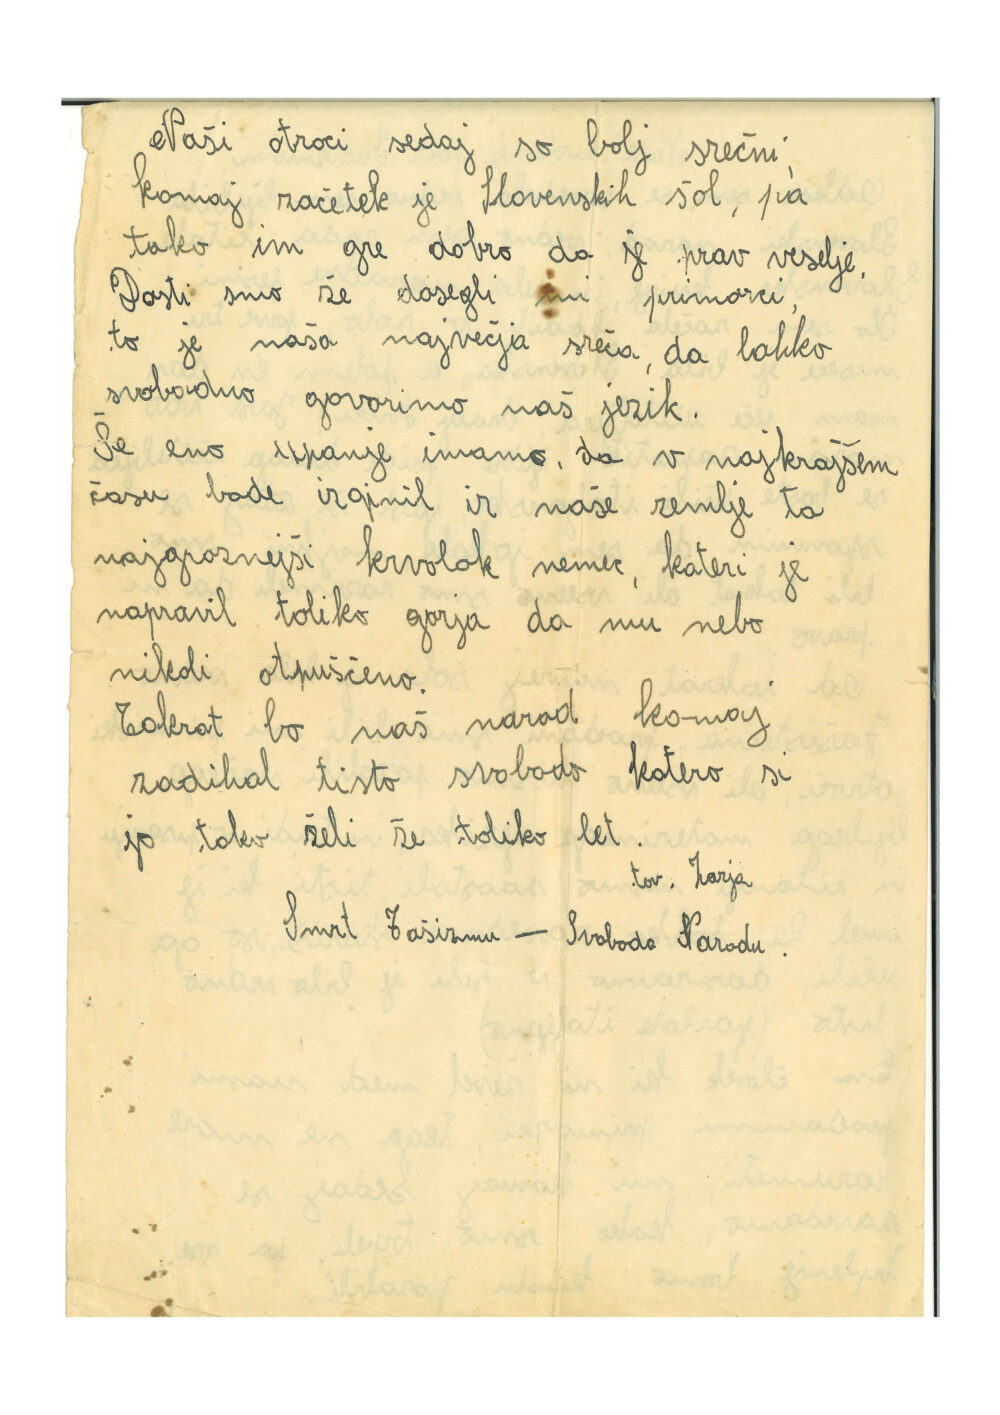 Naši otroci sedaj so bolj srečni,
komaj začetek je Slovenskih šol, pa
tako im gre dobro da je prav veselje.
Dosti smo že dosegli mi primorci,
to je naša največja sreča, da lahko
svobodno govorimo naš jezik.
Še eno upanje imamo, da v najkrajšem
času bode izginil iz naše zemlje ta
najgroznejši krvolok nemec, kateri je
napravil toliko gorja da mu nebo
nikdi otpuščeno.
Takrat bo naš narod komaj
zadihal tisto svobodo katero si
jo tako želi že toliko let.
tov. Zarja
Smrt Fašizmu — Svoboda Narodu.